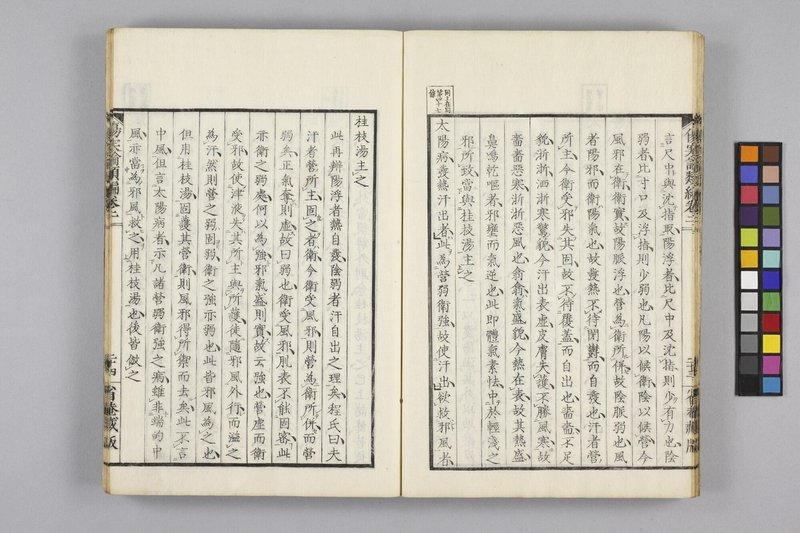 言尺中與沈指取陽浮者比尺中及沈指則少有力也陰
弱者比寸口及浮指則少弱也凡陽以候衛陰以候營今
風邪在衛衛實故陽脈浮也營為衛所併故陰脈弱也風
者陽邪而衛陽氣也故發熱不待閉鬱而自發也汗者營
所主今衛受邪失其固故不待覆蓋而自出也嗇嗇不足
貌淅淅洒淅寒驚貌今汗出表虛皮膚失護不勝風寒故
嗇嗇惡寒淅淅惡風也翕翕氣盛貌今熱在表故其熱盛
鼻鳴乾嘔者邪壅而氣逆也此即體氣素怯中於輕淺之
邪所致當與桂枝湯主之
太陽病發熱汗出者此為營弱衛強故使汗出欲救邪風者
桂枝湯主之
此再辨陽浮者熱自發陰弱者汗自出之理矣程氏曰夫
汗者營所主固之者衛今衛受風邪則營為衛所併而營
弱矣正氣奪則虛故曰弱也衛受風邪肌表不能固密此
亦衛之弱處何以為強邪氣盛則實故云強也營虛而衛
受邪故使津液失其所主與所護徒隨邪風外行而溢之
為汗然則營之弱固弱衛之強亦弱也此皆邪風為之也
但用桂枝湯固護其營衛則風邪得所禦而去矣此不言
中風但言太陽病者示凡諸營弱衛強之病雖非端的中
風亦當為邪風救之用桂枝湯也後皆倣之
傷寒論類編卷二
二十四
省菴藏版